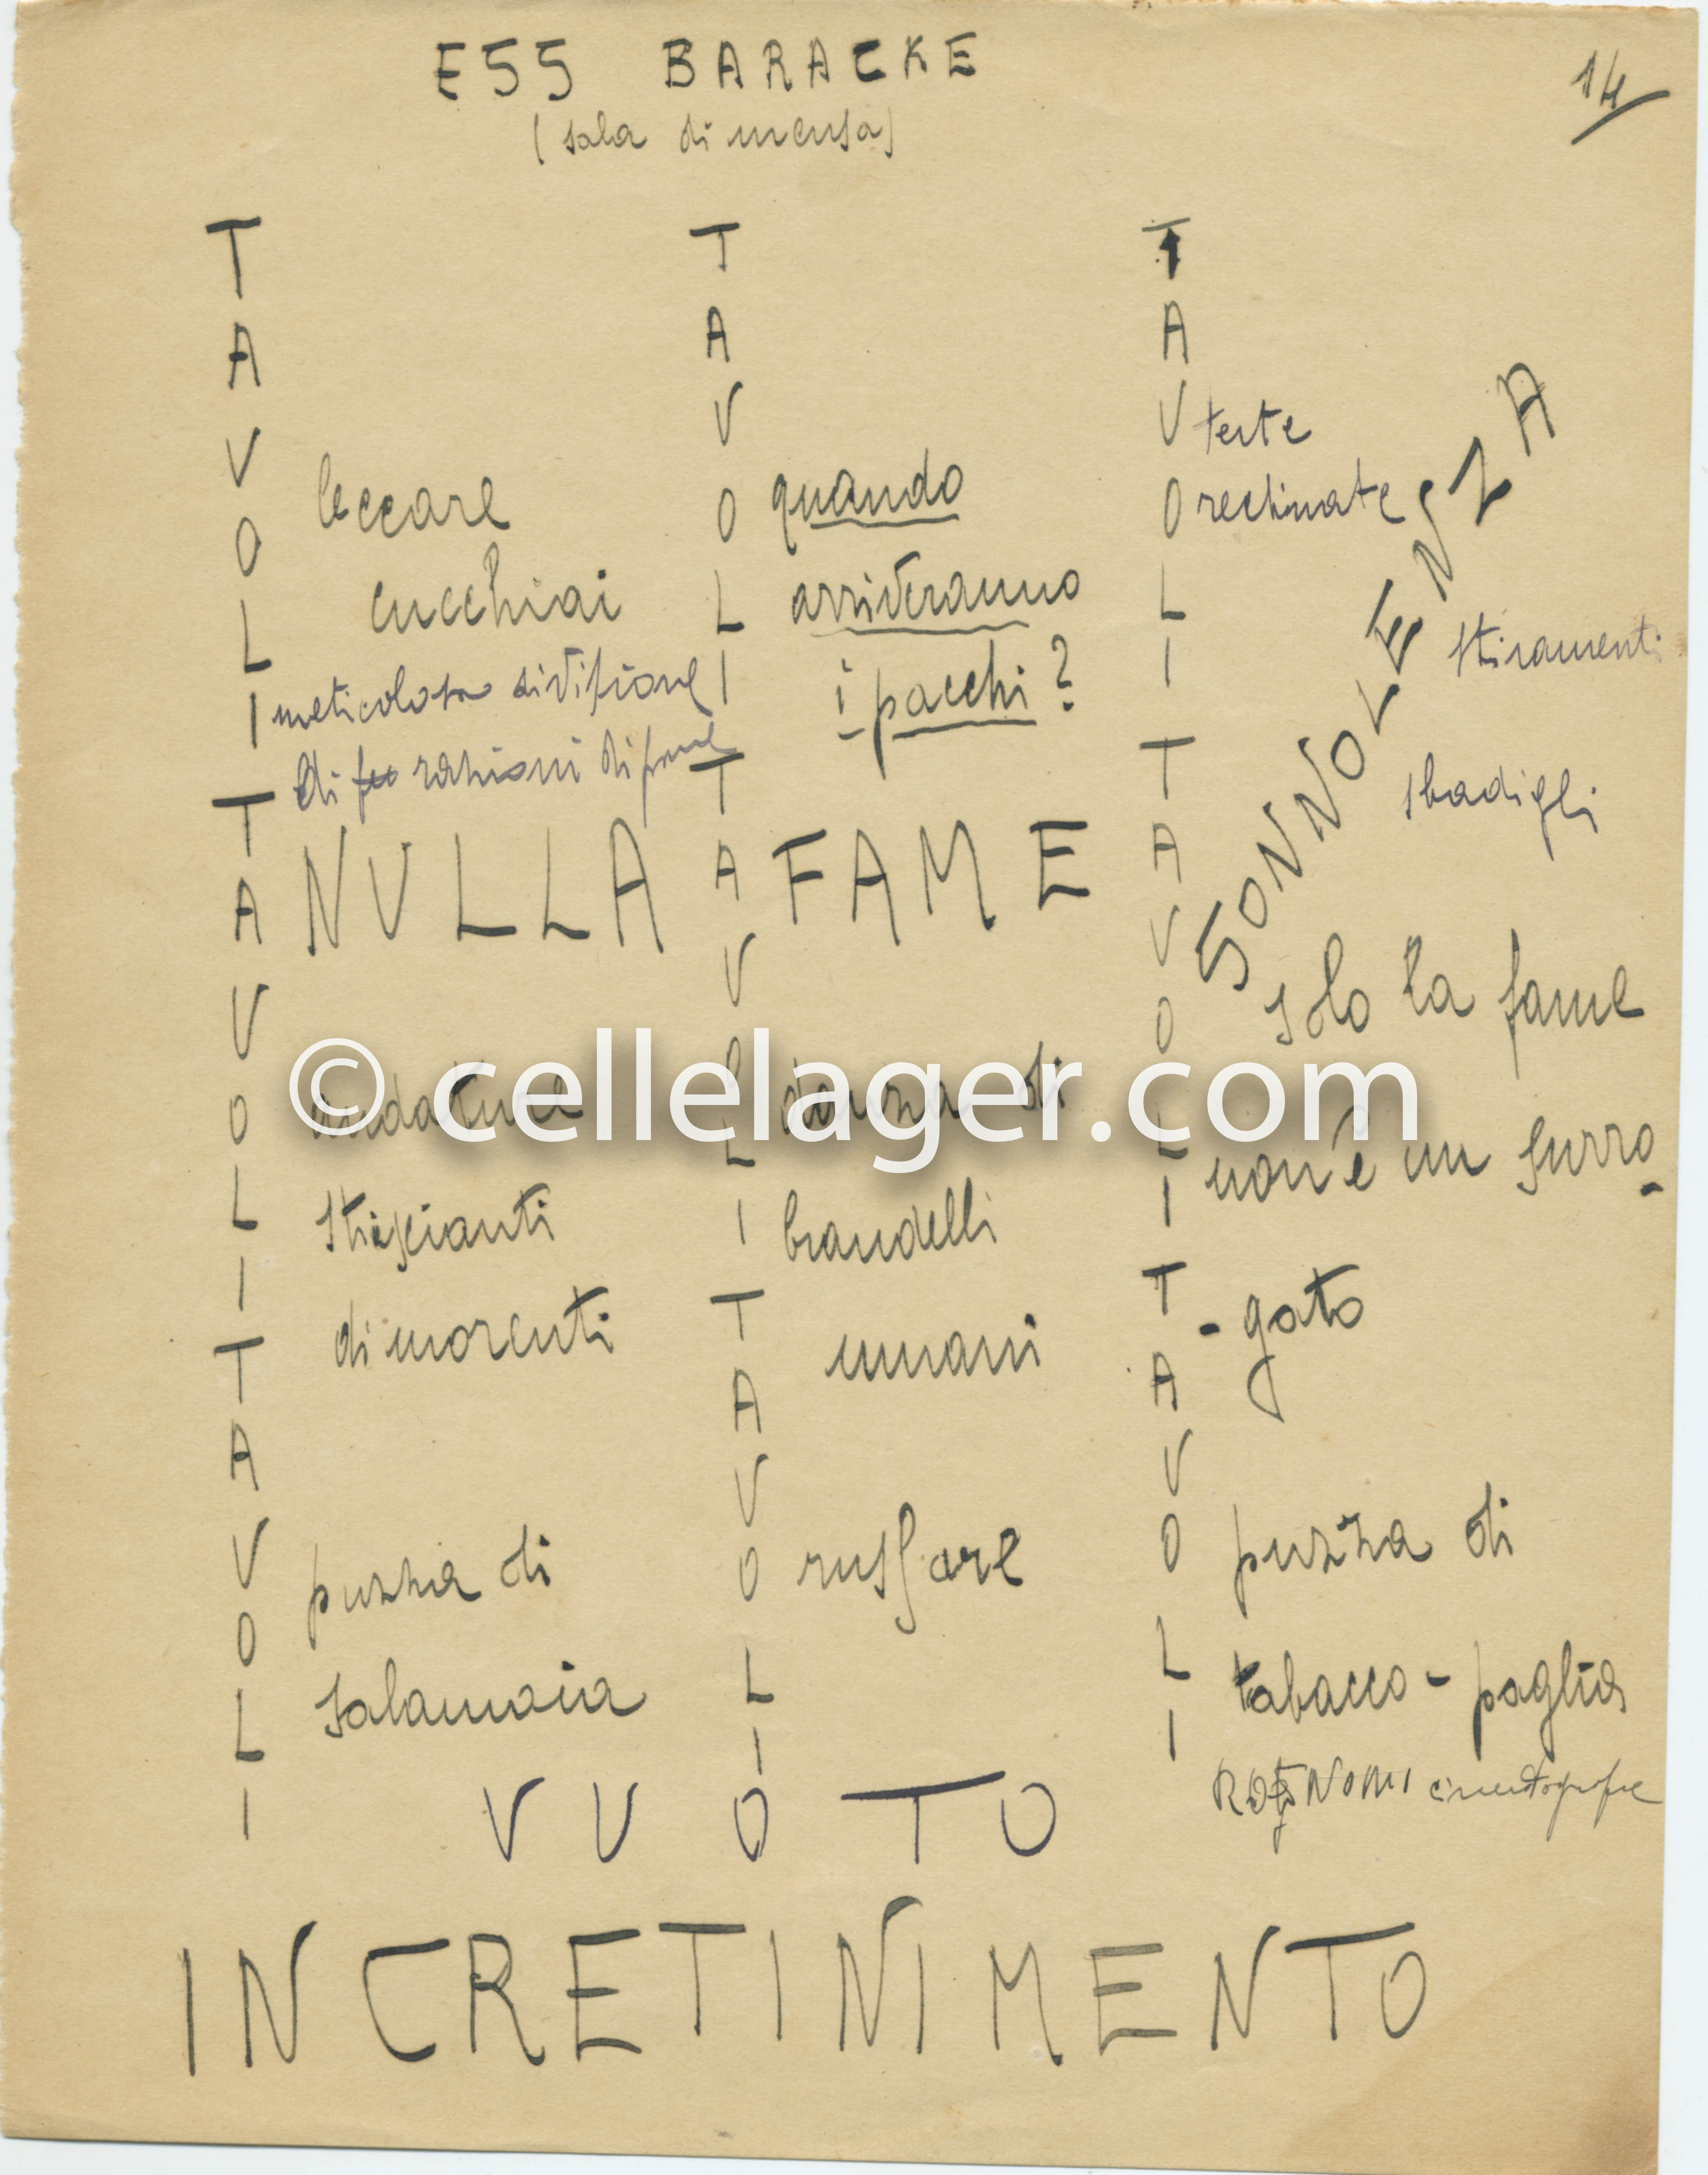 ESS BARACKE
(sala di mensa)
14
TAVOLI TAVOLI TAVOLI
leccare
cucchiai
meticolosa divisione
di razioni di pane
NULLA
andature
striscianti
di morenti
puzza di
salamoia
TAVOLI TAVOLI TAVOLI
quando
arriveranno
i pacchi?
FAME
danza di
brandelli
umani
russare
TAVOLI TAVOLI TAVOLI
teste
reclinate
SONNOLENZA
stiramenti
sbadigli
solo la fame
non è un surro-
-gato
puzza di
tabacco - paglia
VUOTO
INCRETINIMENTO
© cellelager.com